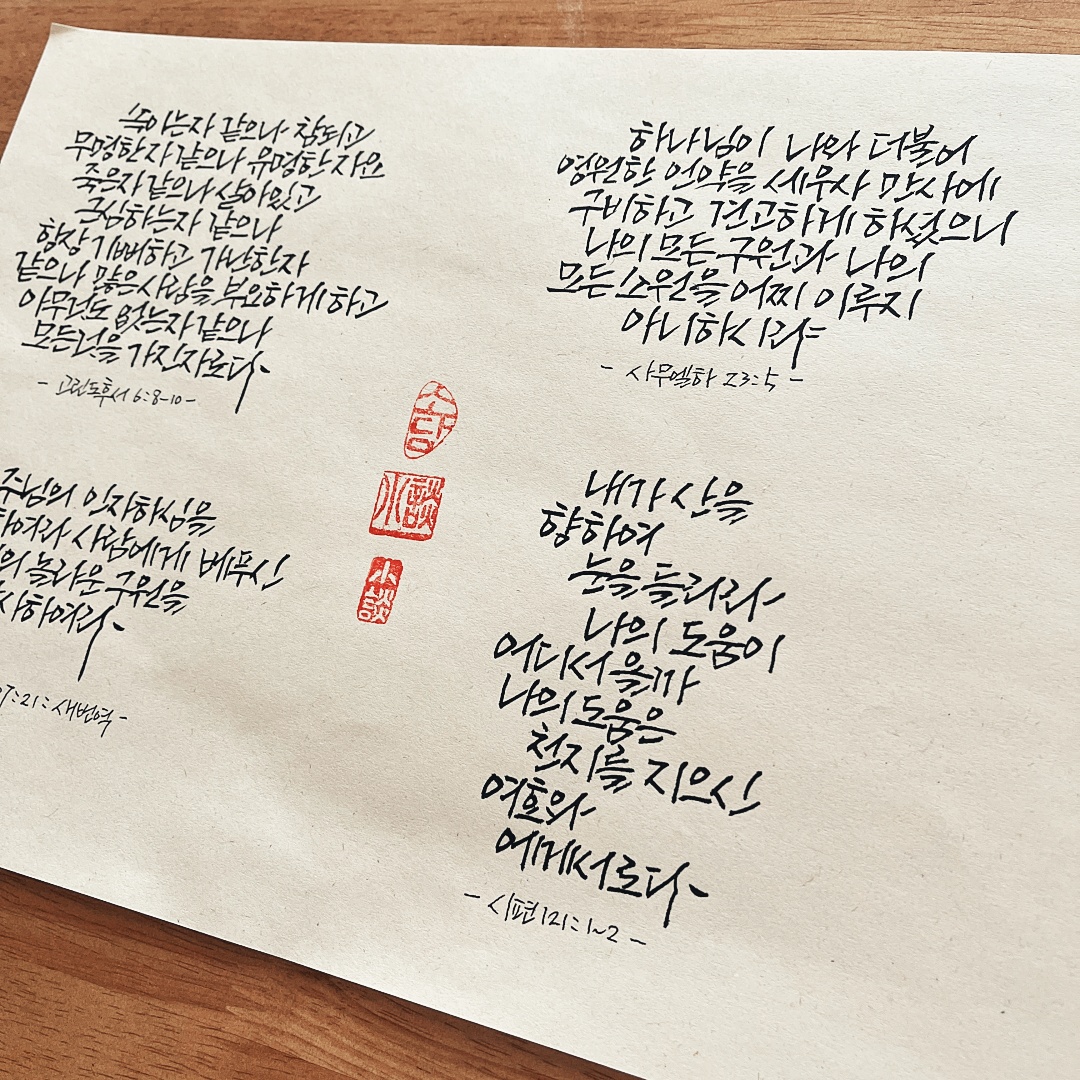 속이는자 같으나 참되고
무명한자 같으나 유명한 자요
죽은자 같으나 살아있고
근심하는자 같으나
항상 기뻐하고 가난한자
같으나 많은사람을 부요하게 하고
아무것도 없는자 같으나
모든것을 가진자로다
- 고린도후서 6:8-10 -
하나님이 나와 더불어
영원한 언약을 세우사 만사에
구비하고 견고하게 하셨으니
나의 모든 구원과 나의
모든 소원을 어찌 이루지
아니하시랴
- 사무엘하 23:5 -
소담
小談
小談
주님의 인자하심을
하여라 사람에게 베푸신
의 놀라운 구원을
사하여라
:21 : 새번역 -
내가 산을
향하여
눈을 들리라
나의 도움이
어디서 올까
나의 도움은
천지를 지으신
여호와
에게서로다
- 시편 121:1~2 -